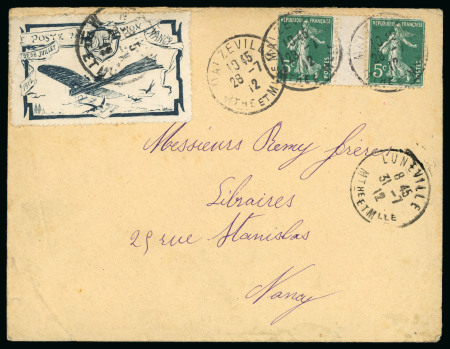 POSTE
FRANCE
MALZÉVILLE
10 45
28 -7
12
MTHE ET M
RÉPUBLIQUE FRANÇAISE
5c
POSTES
RÉPUBLIQUE FRANÇAISE
5c
POSTES
LUNÉVILLE
8 45
31 -7
12
MTHE ET MLLE
Messieurs Remy frères
Libraires
25 rue Stanislas
Nancy